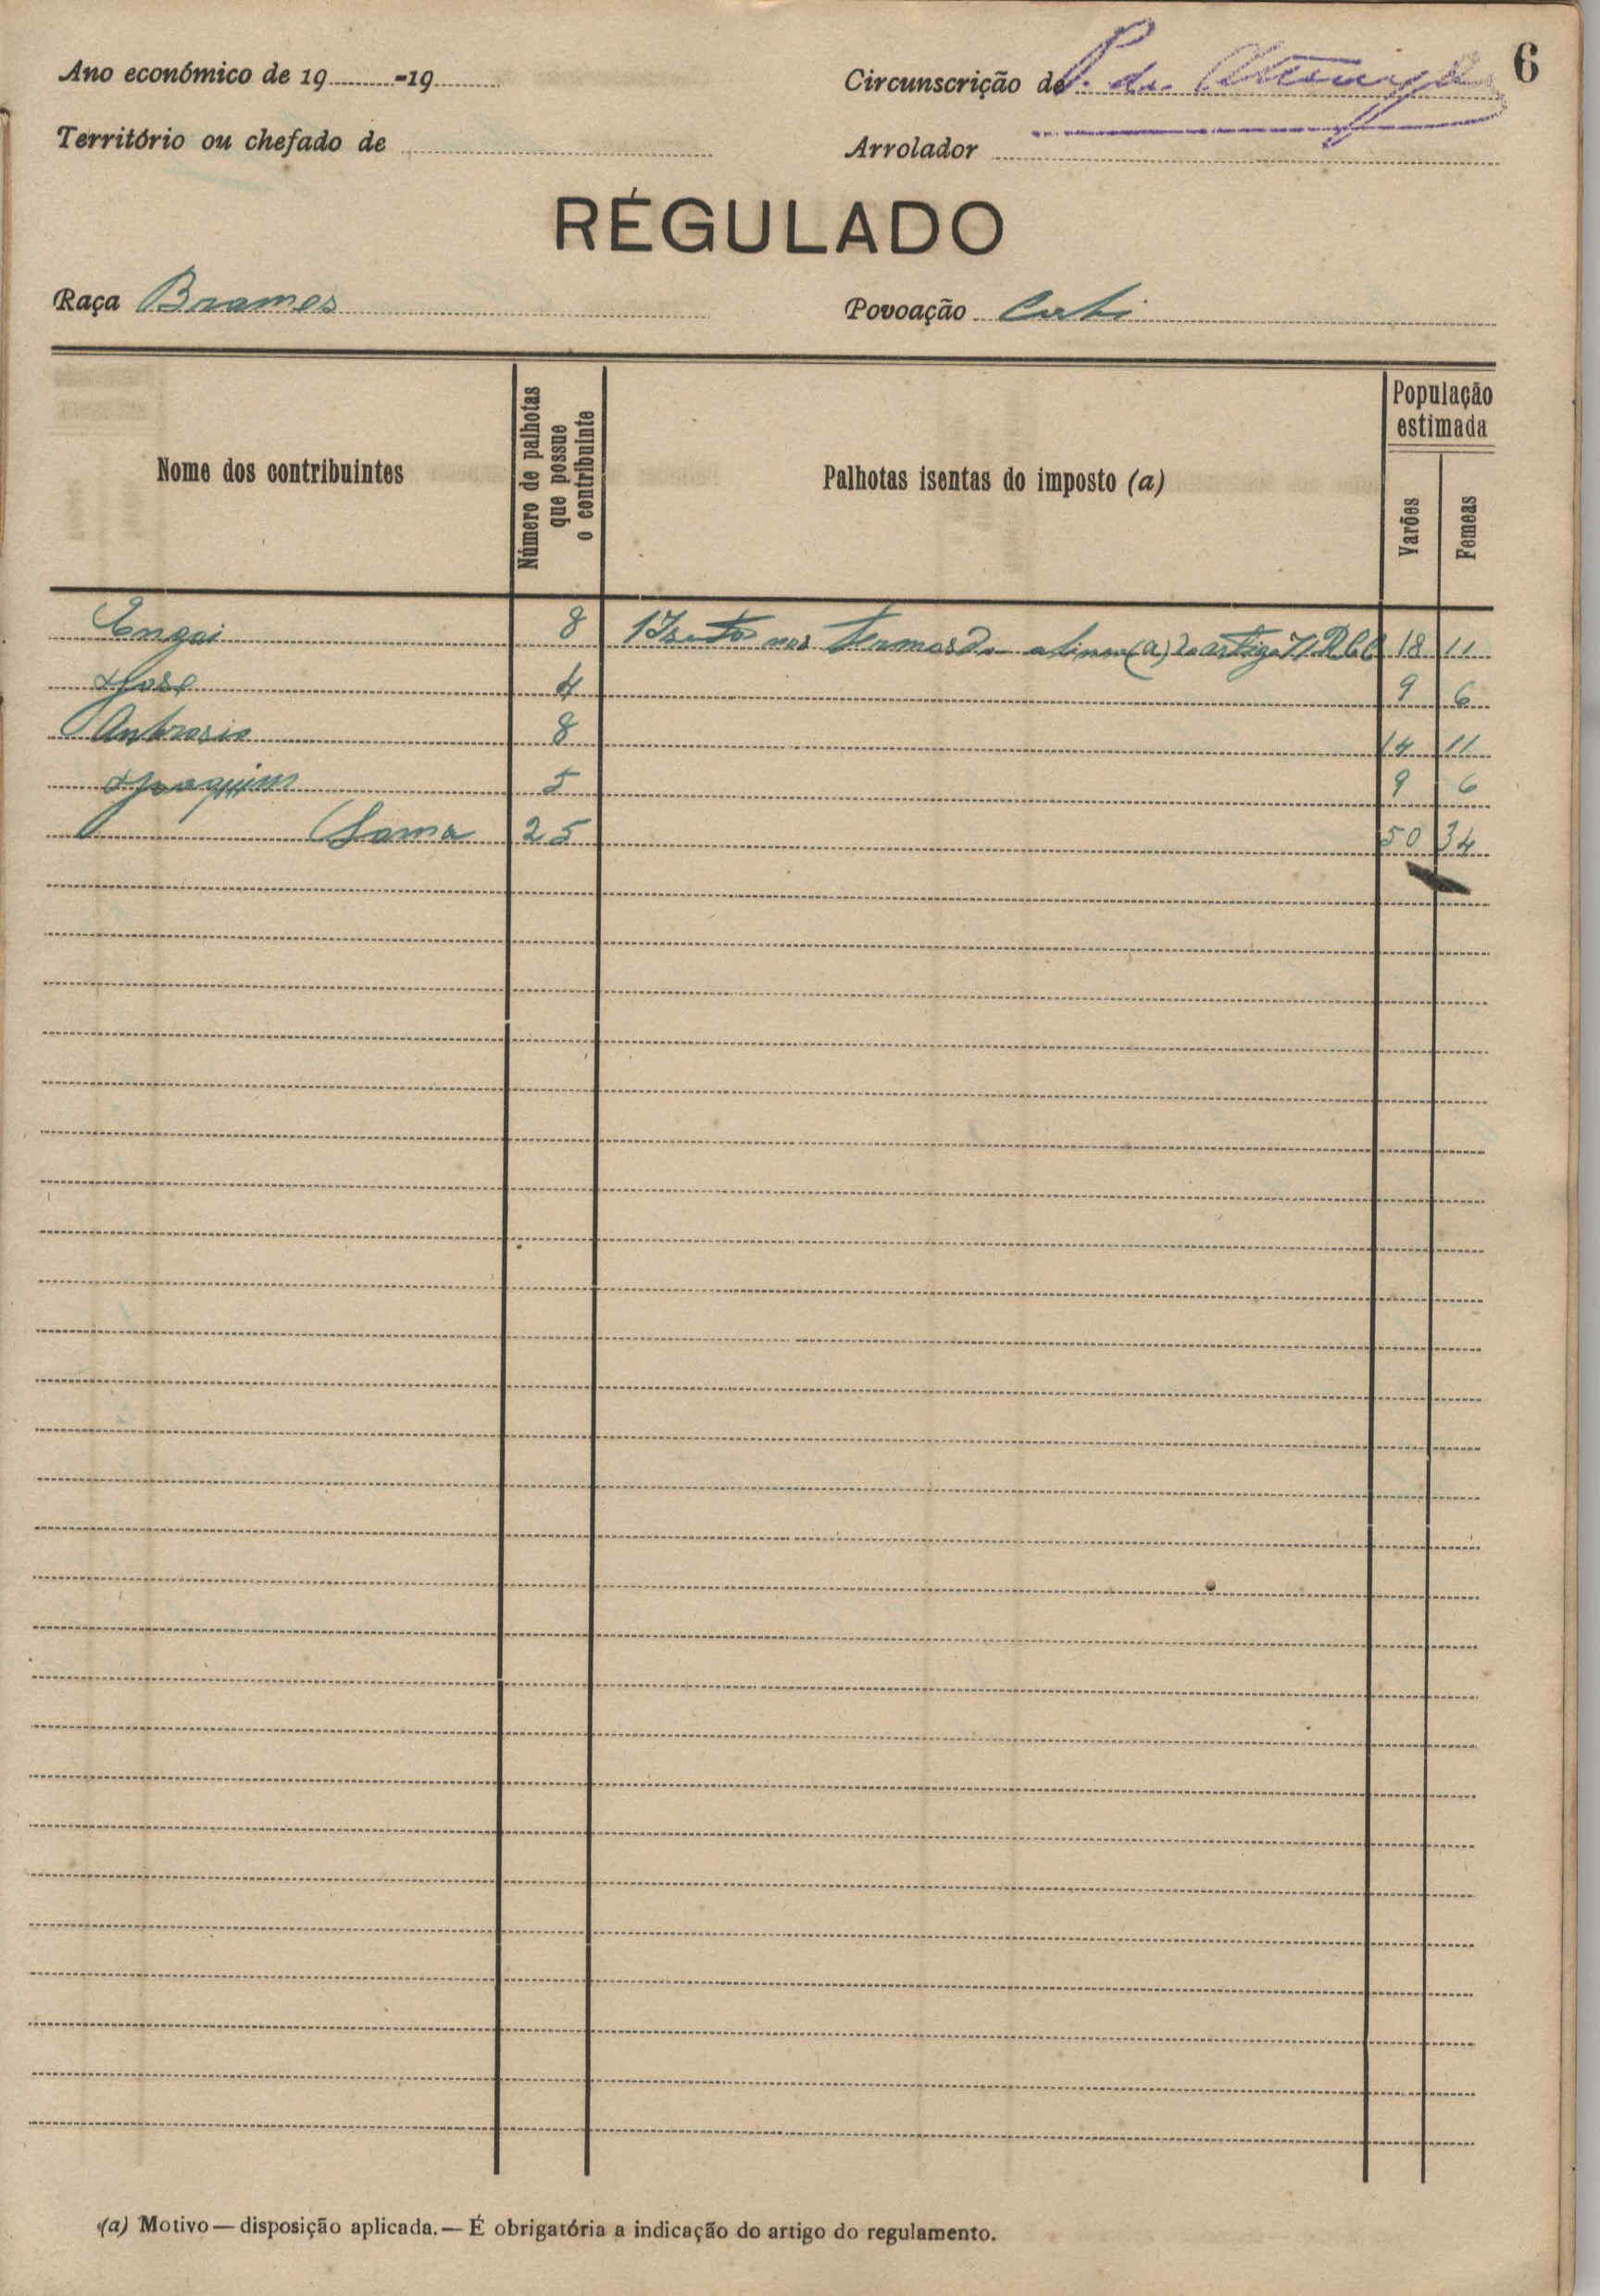 6
Ano económico de 19 -19
Circunscrição de
Território ou chefado de
Arrolador
RÉGULADO
Raça Brames
Povoação
Nome dos contribuintes
Número de palhotas que possue o contribuinte
Palhotas isentas do imposto (a)
População estimada
Varões
Femeas
8 1 Isento nos termos da alinea (a) do artigo 18 11
José 4 9 6
Anbrosio 8 14 11
Joaquim 5 9 6
Soma 25 50 34
(a) Motivo — disposição aplicada. — É obrigatória a indicação do artigo do regulamento.